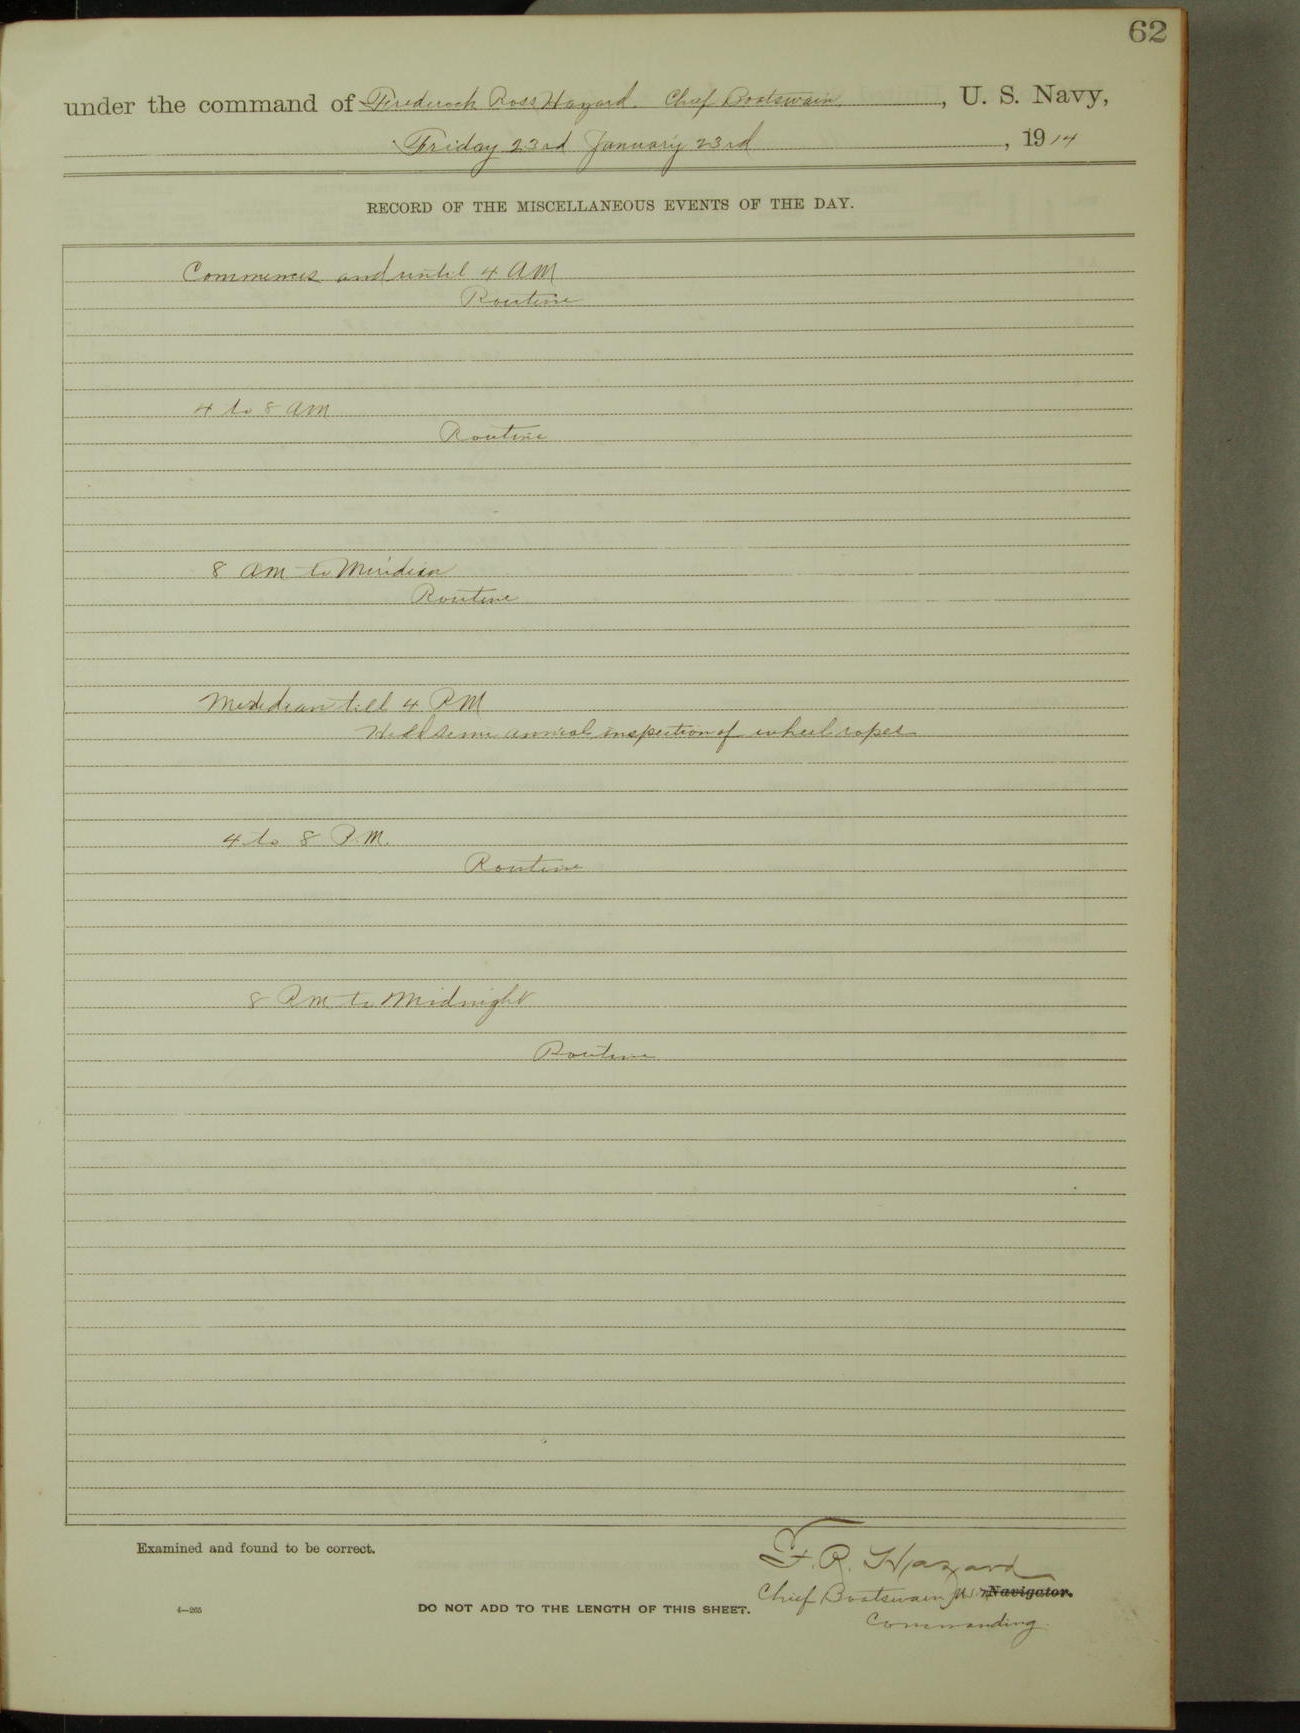 62
under the command of Frederick Ross Hazard. Chief Boatswain, U. S. Navy,
Friday 23rd January 23rd, 1914
RECORD OF THE MISCELLANEOUS EVENTS OF THE DAY.
Commences and until 4 AM
Routine
4 to 8 AM
Routine
8 AM to Meridian
Routine
Meridian till 4 PM
Held semi annual inspection of wheel ropes
4 to 8 P.M.
Routine
8 PM to Midnight
Routine
Examined and found to be correct.
F. R. Hazard
Chief Boatswain U.S.N. Navigator.
Commanding.
4—265
DO NOT ADD TO THE LENGTH OF THIS SHEET.